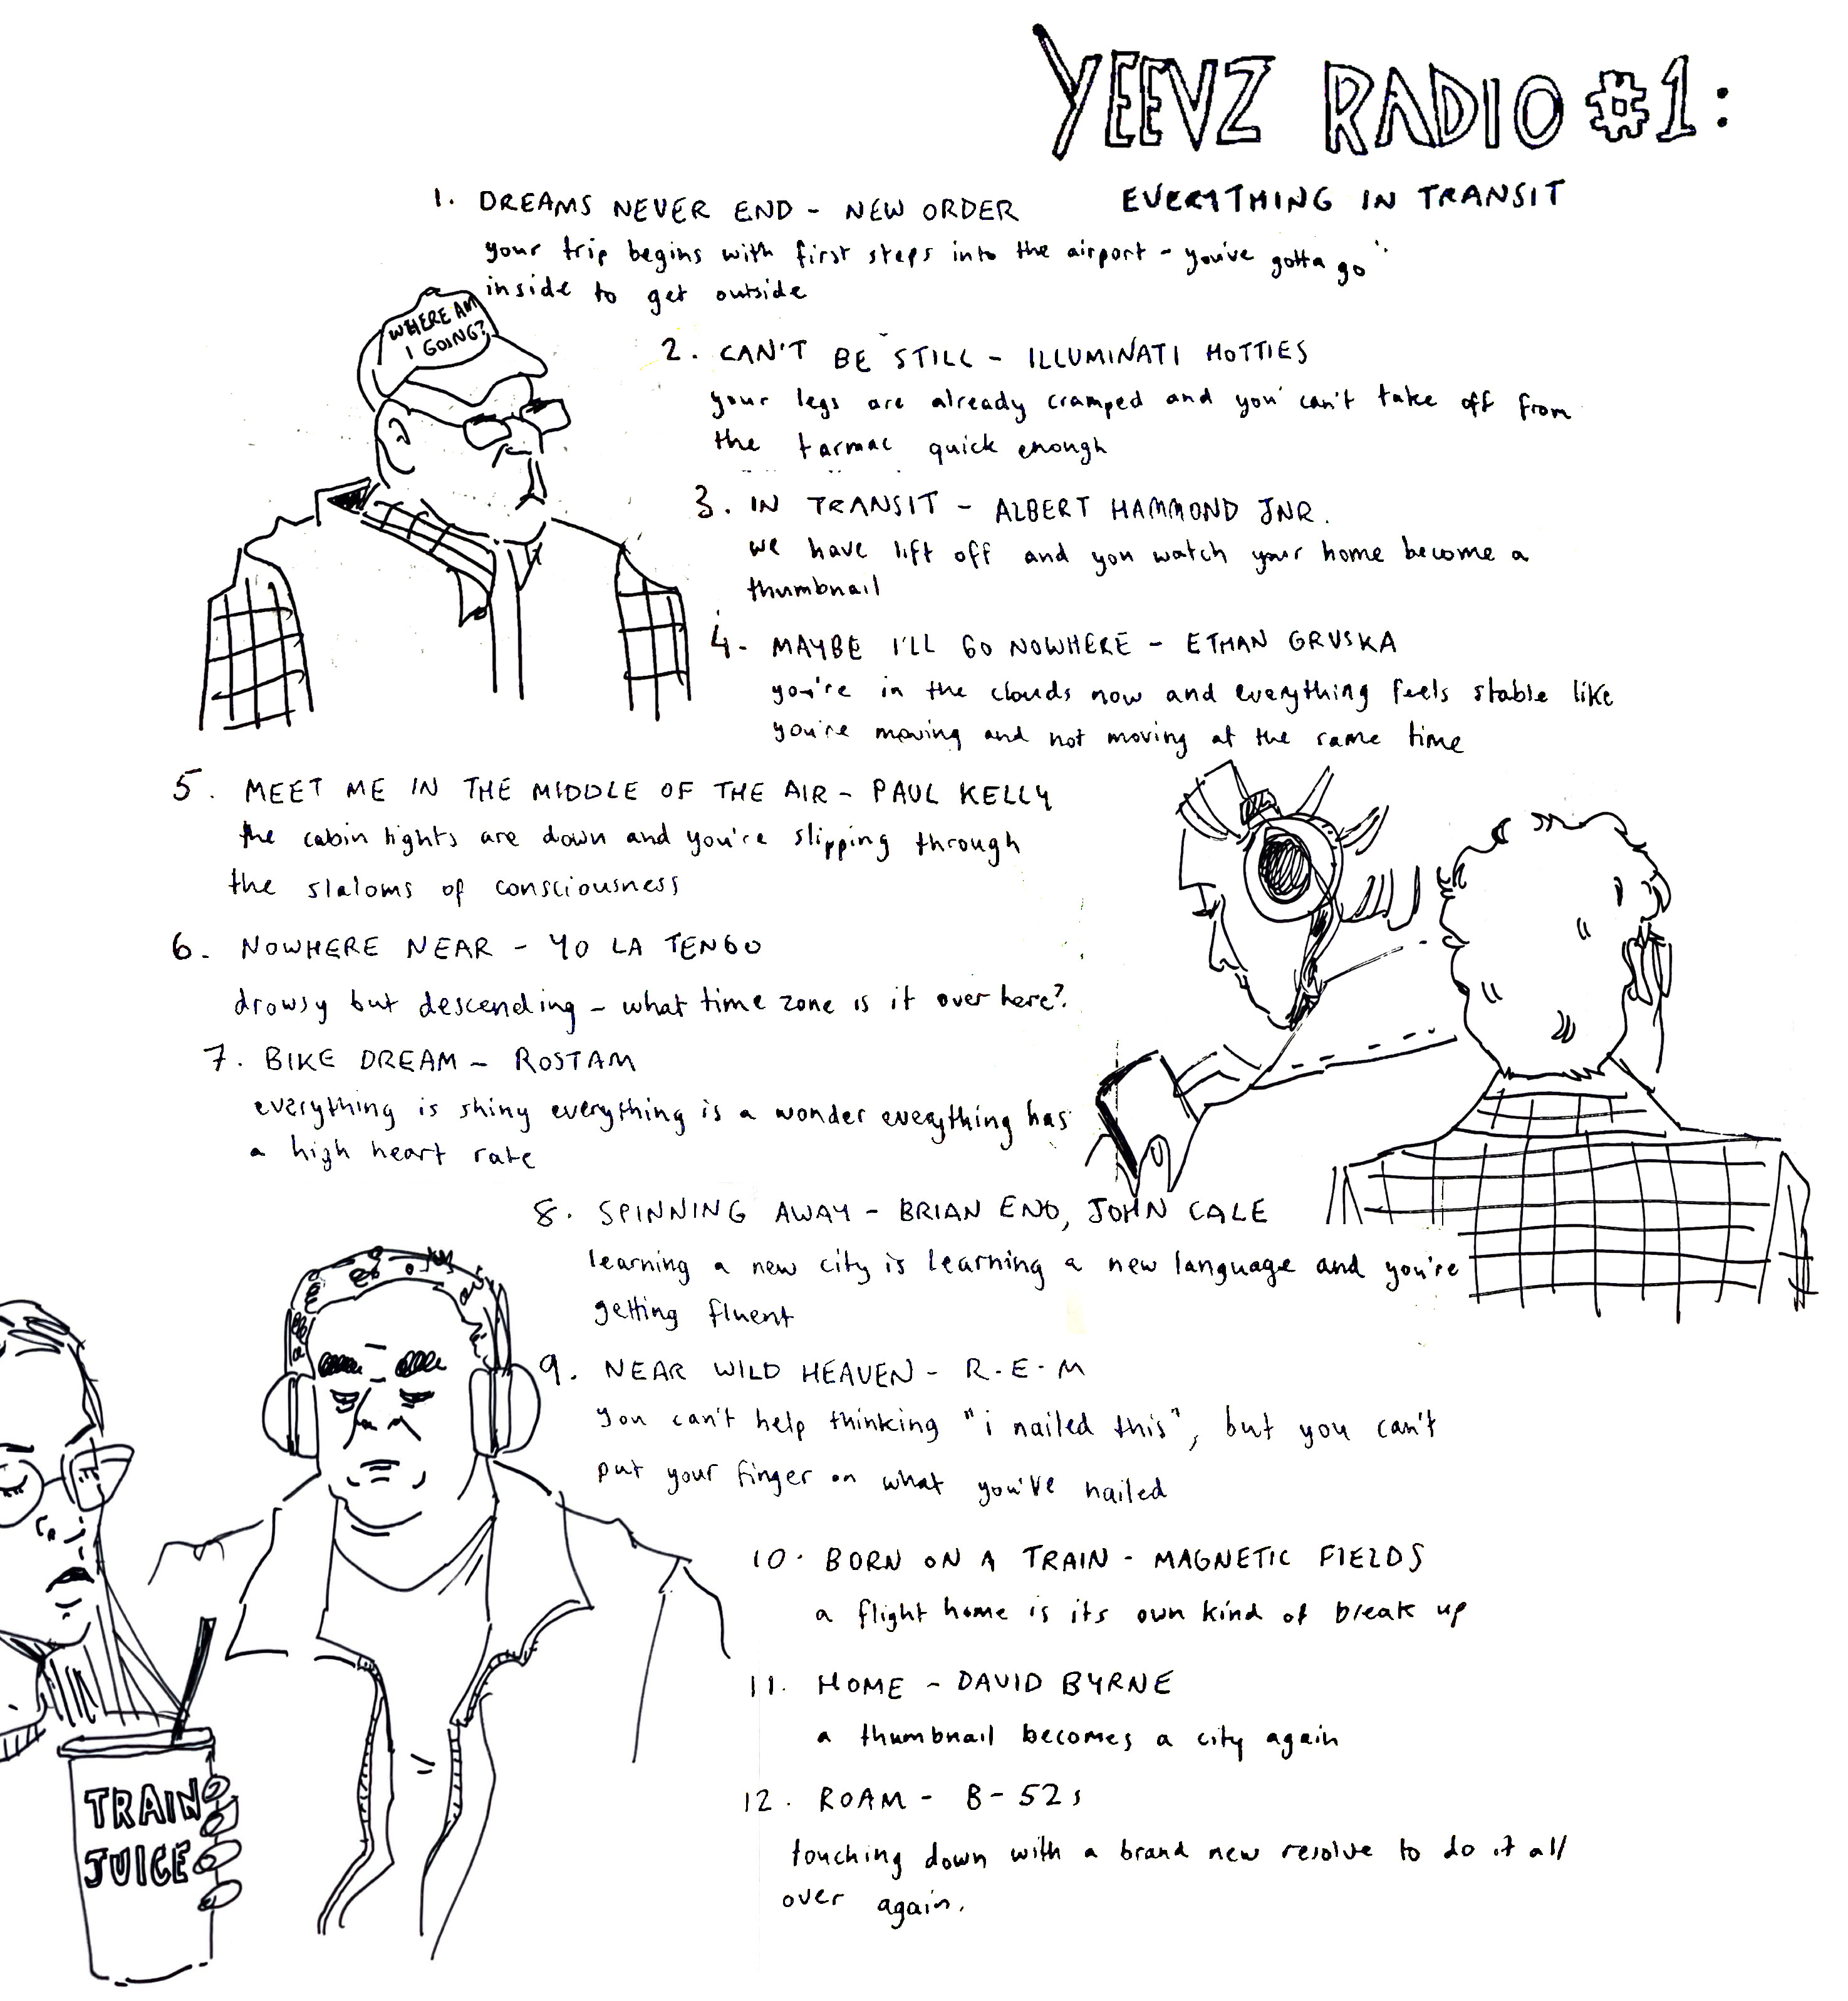 YEEVZ RADIO #1:
EVERYTHING IN TRANSIT
1. DREAMS NEVER END - NEW ORDER
your trip begins with first steps into the airport - you've gotta go
inside to get outside
WHERE AM
I GOING?
2. CAN'T BE STILL - ILLUMINATI HOTTIES
your legs are already cramped and you can't take off from
the tarmac quick enough
3. IN TRANSIT - ALBERT HAMMOND JNR.
we have lift off and you watch your home become a
thumbnail
4. MAYBE I'LL GO NOWHERE - ETHAN GRUSKA
you're in the clouds now and everything feels stable like
you're moving and not moving at the same time
5. MEET ME IN THE MIDDLE OF THE AIR - PAUL KELLY
the cabin lights are down and you're slipping through
the slaloms of consciousness
6. NOWHERE NEAR - YO LA TENGO
drowsy but descending - what time zone is it over here?
7. BIKE DREAM - ROSTAM
everything is shiny everything is a wonder everything has
a high heart rate
8. SPINNING AWAY - BRIAN ENO, JOHN CALE
learning a new city is learning a new language and you're
getting fluent
9. NEAR WILD HEAVEN - R.E.M
you can't help thinking "i nailed this", but you can't
put your finger on what you've nailed
10. BORN ON A TRAIN - MAGNETIC FIELDS
a flight home is its own kind of break up
11. HOME - DAVID BYRNE
a thumbnail becomes a city again
12. ROAM - B-52s
touching down with a brand new resolve to do it all
over again.
TRAIN
JUICE